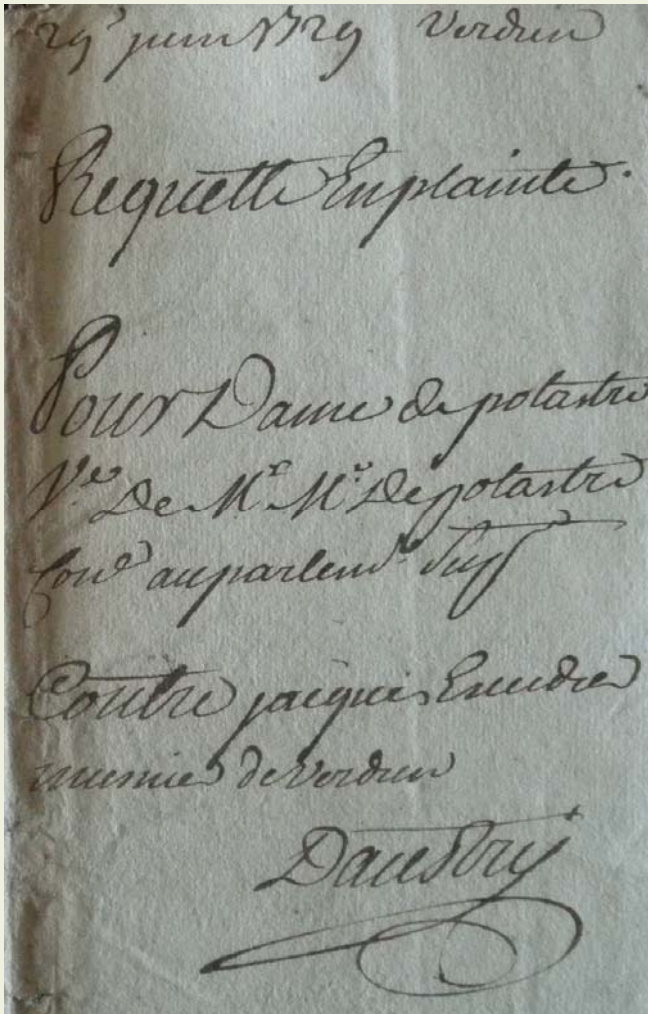 29e juin 1729 Verdun
Requette En plainte.
Pour Dame de polastre
Ve De Mr Me De polastre
Conr au parlemt Supt
Contre jacques Escudié
musnier de verdun